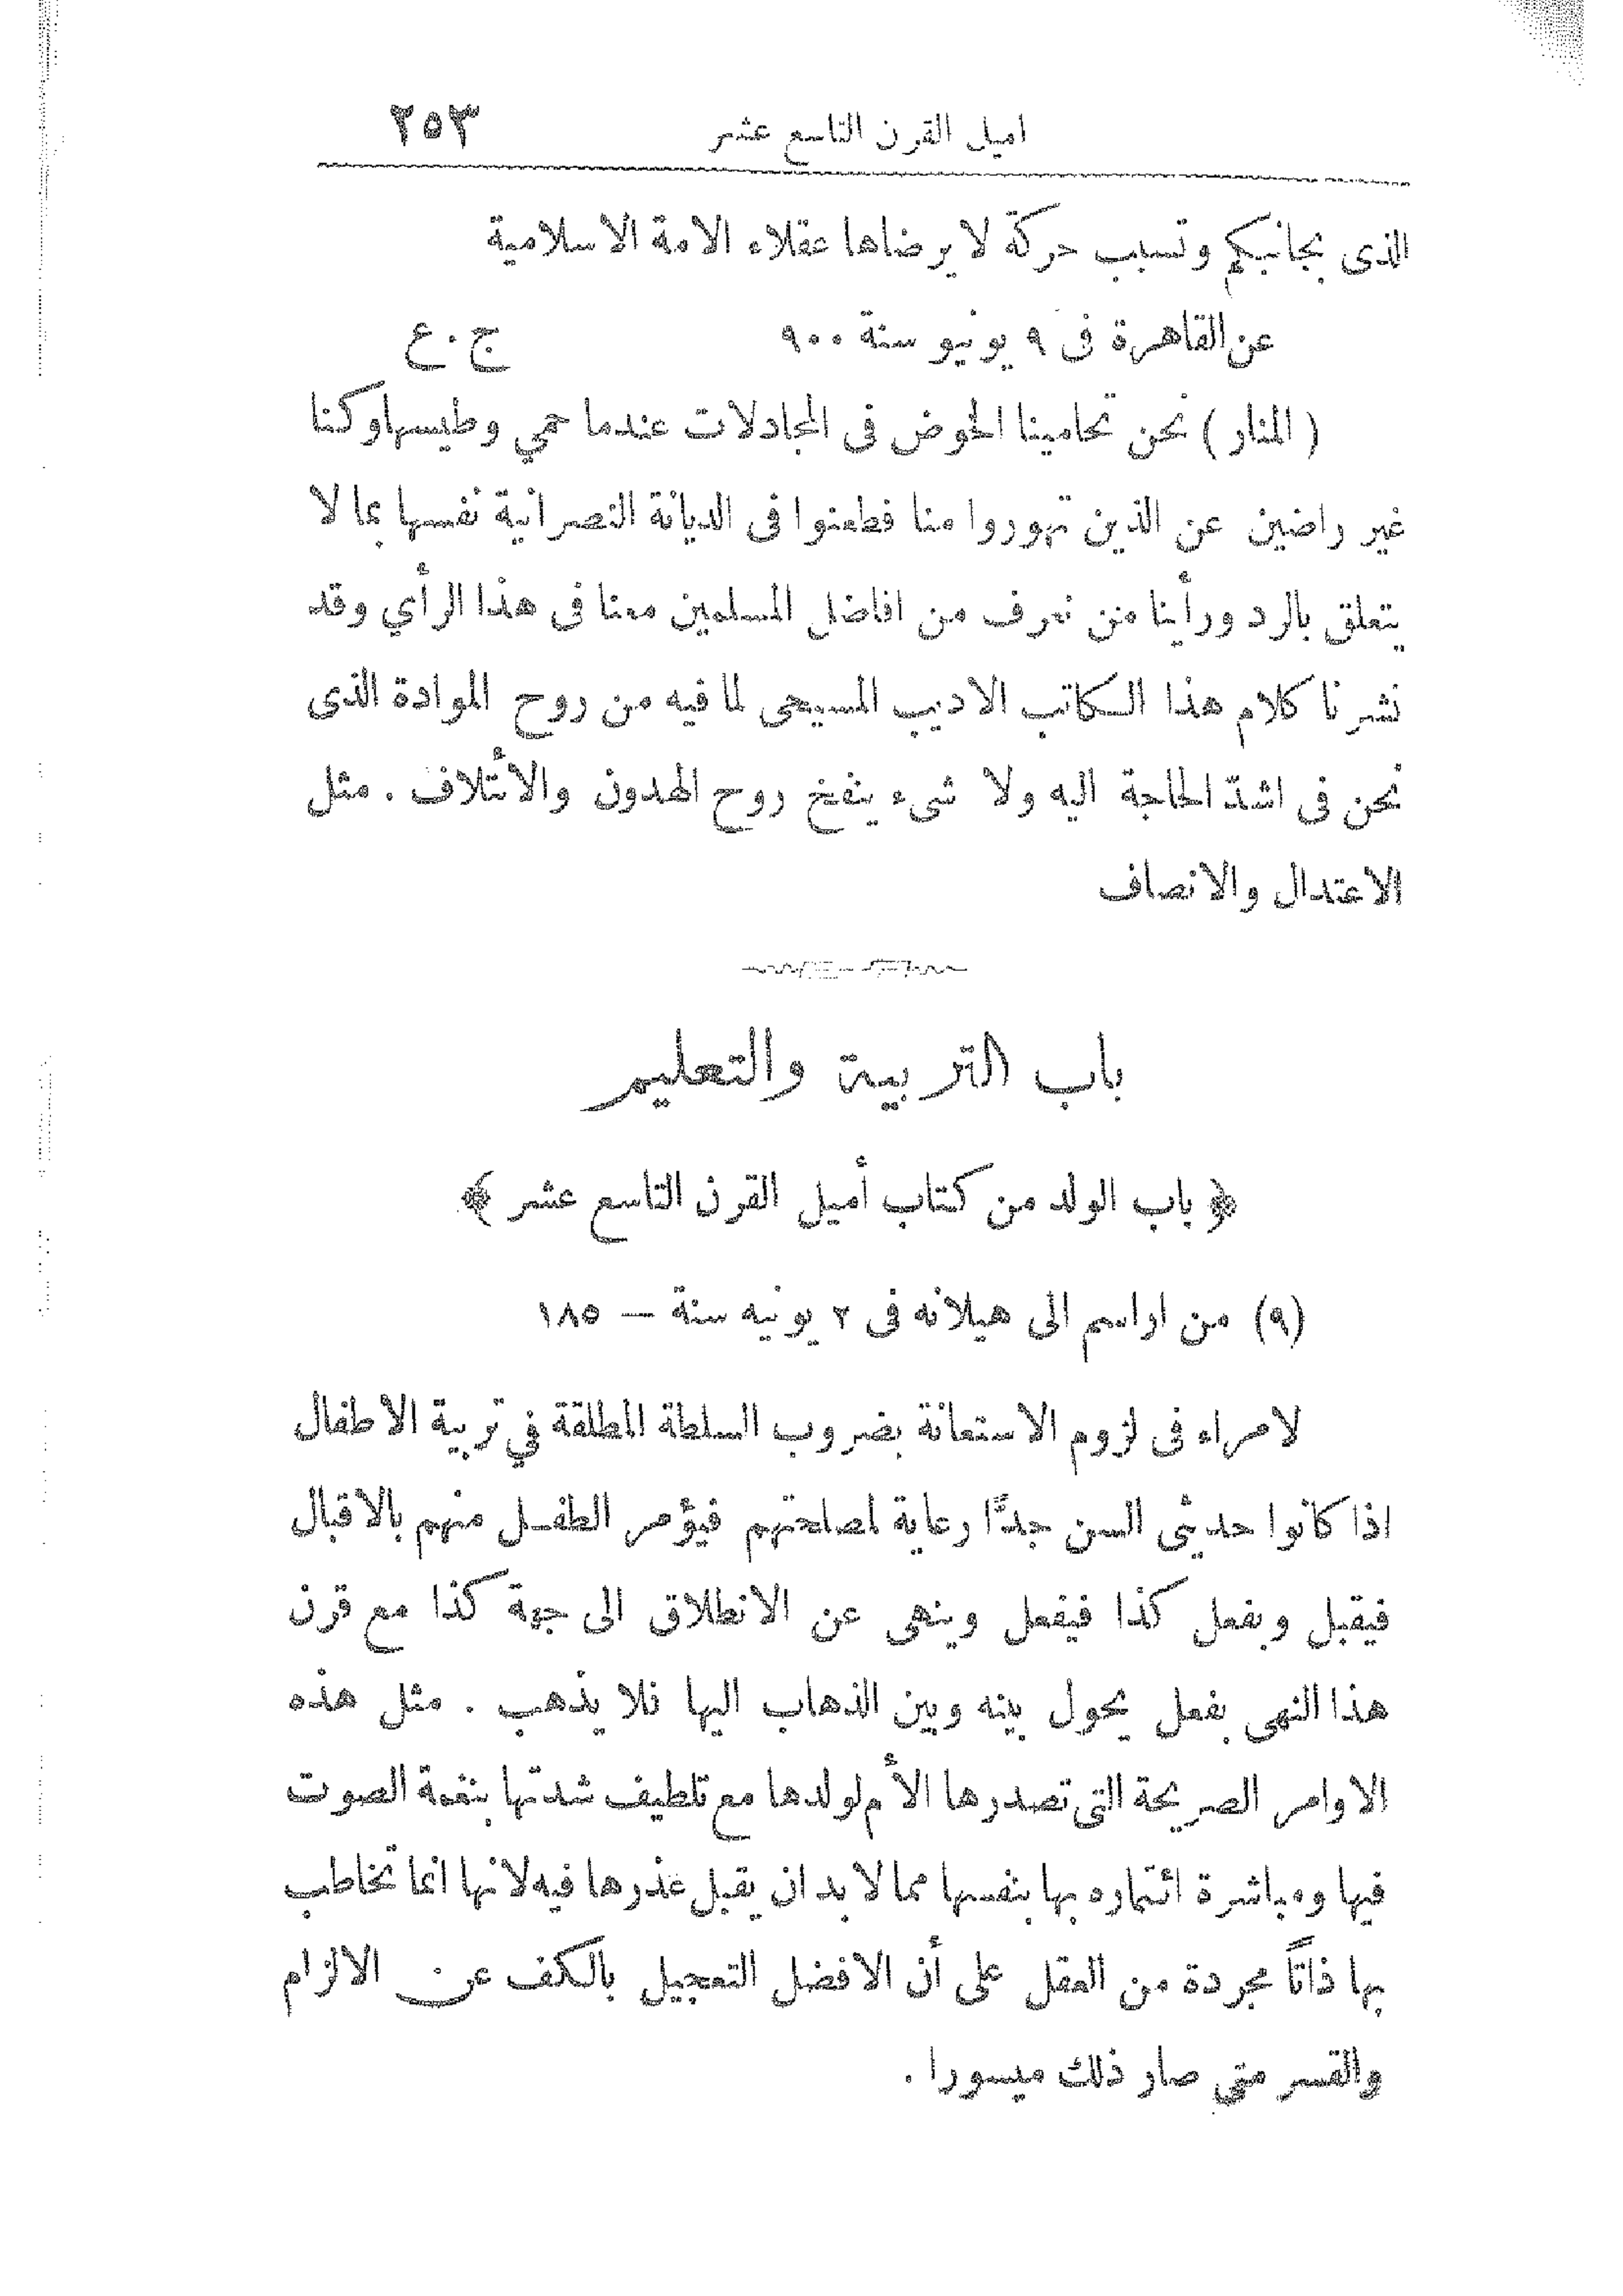 اميل القرن التاسع عشر ٢٥٣
الذى بجانبكم وتسبب حركة لا يرضاها عقلاء الامة الاسلامية
عن القاهرة فى ٩ يونيو سنة ٩٠٠ ج . ع
( المنار ) نحن تحامينا الخوض فى المجادلات عندما حمي وطيسها وكنا
غير راضين عن الذين تهوروا منا فطعنوا فى الديانة النصرانية نفسها بما لا
يتعلق بالرد ورأينا من نعرف من افاضل المسلمين معنا فى هذا الرأي وقد
نشرنا كلام هذا الكاتب الاديب المسيحى لما فيه من روح الموادة الذى
نحن فى اشد الحاجة اليه ولا شىء ينفخ روح الهدون والائتلاف . مثل
الاعتدال والانصاف
باب التربية والتعليم
﴿ باب الولد من كتاب أميل القرن التاسع عشر ﴾
(٩) من اراسم الى هيلانه فى ٢ يونيه سنة — ١٨٥
لا مراء فى لزوم الاستعانة بضروب السلطة المطلقة في تربية الاطفال
اذا كانوا حديثى السن جدًّا رعاية لمصلحتهم فيؤمر الطفل منهم بالاقبال
فيقبل وبفعل كذا فيفعل وينهى عن الانطلاق الى جهة كذا مع قرن
هذا النهى بفعل يحول بينه وبين الذهاب اليها فلا يذهب . مثل هذه
الاوامر الصريحة التى تصدرها الأم لولدها مع تلطيف شدتها بنغمة الصوت
فيها ومباشرة ائتماره بها بنفسها مما لا بد ان يقبل عذرها فيه لانها انما تخاطب
بها ذاتًا مجردة من العقل على أن الافضل التعجيل بالكف عن الالزام
والقسر متى صار ذلك ميسورا .